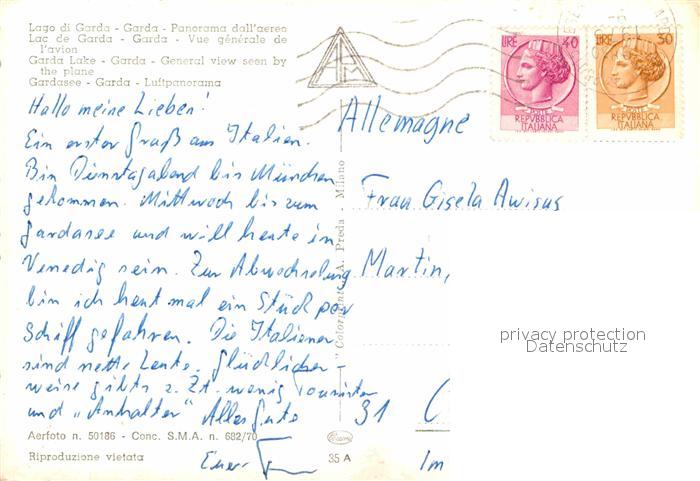 Lago di Garda - Garda - Panorama dall'aereo
Lac de Garda - Garda - Vue générale de
l'avion
Garda Lake - Garda - General view seen by
the plane
Gardasee - Garda - Luftpanorama
Hallo meine Lieben!
Ein erster Gruß aus Italien.
Bin Dienstagabend bis München
gekommen. Mittwoch bis zum
Gardasee und will heute in
Venedig sein. Zur Abwechslung
bin ich heut mal ein Stück per
Schiff gefahren. Die Italiener
sind nette Leute. Glücklicher-
weise gibts z. Zt. wenig Touristen
und "Anhalter" Alles Gute
Euer
Aerfoto n. 50186 - Conc. S.M.A. n. 682/70
Riproduzione vietata
35 A
A. Preda - Milano
LIRE 40
POSTE
REPVBBLICA
ITALIANA
LIRE 30
POSTE
REPVBBLICA
ITALIANA
Allemagne
Frau Gisela Awisus
Martin,
privacy protection
Datenschutz
31
Im